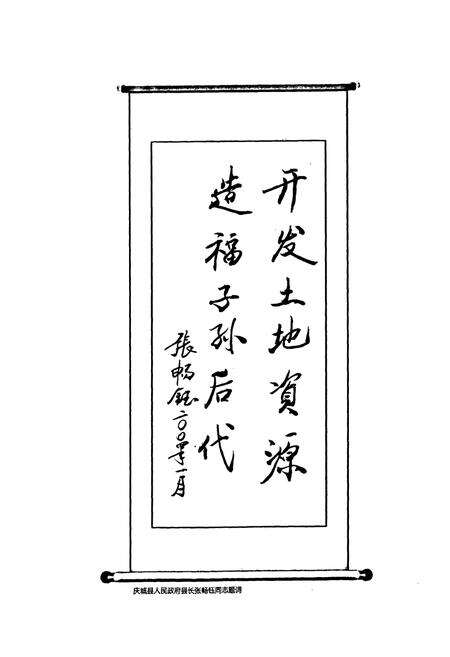 开发土地資源
造福子孙后代
張畅钰二〇〇年一月
庆城县人民政府县长张畅钰同志题词